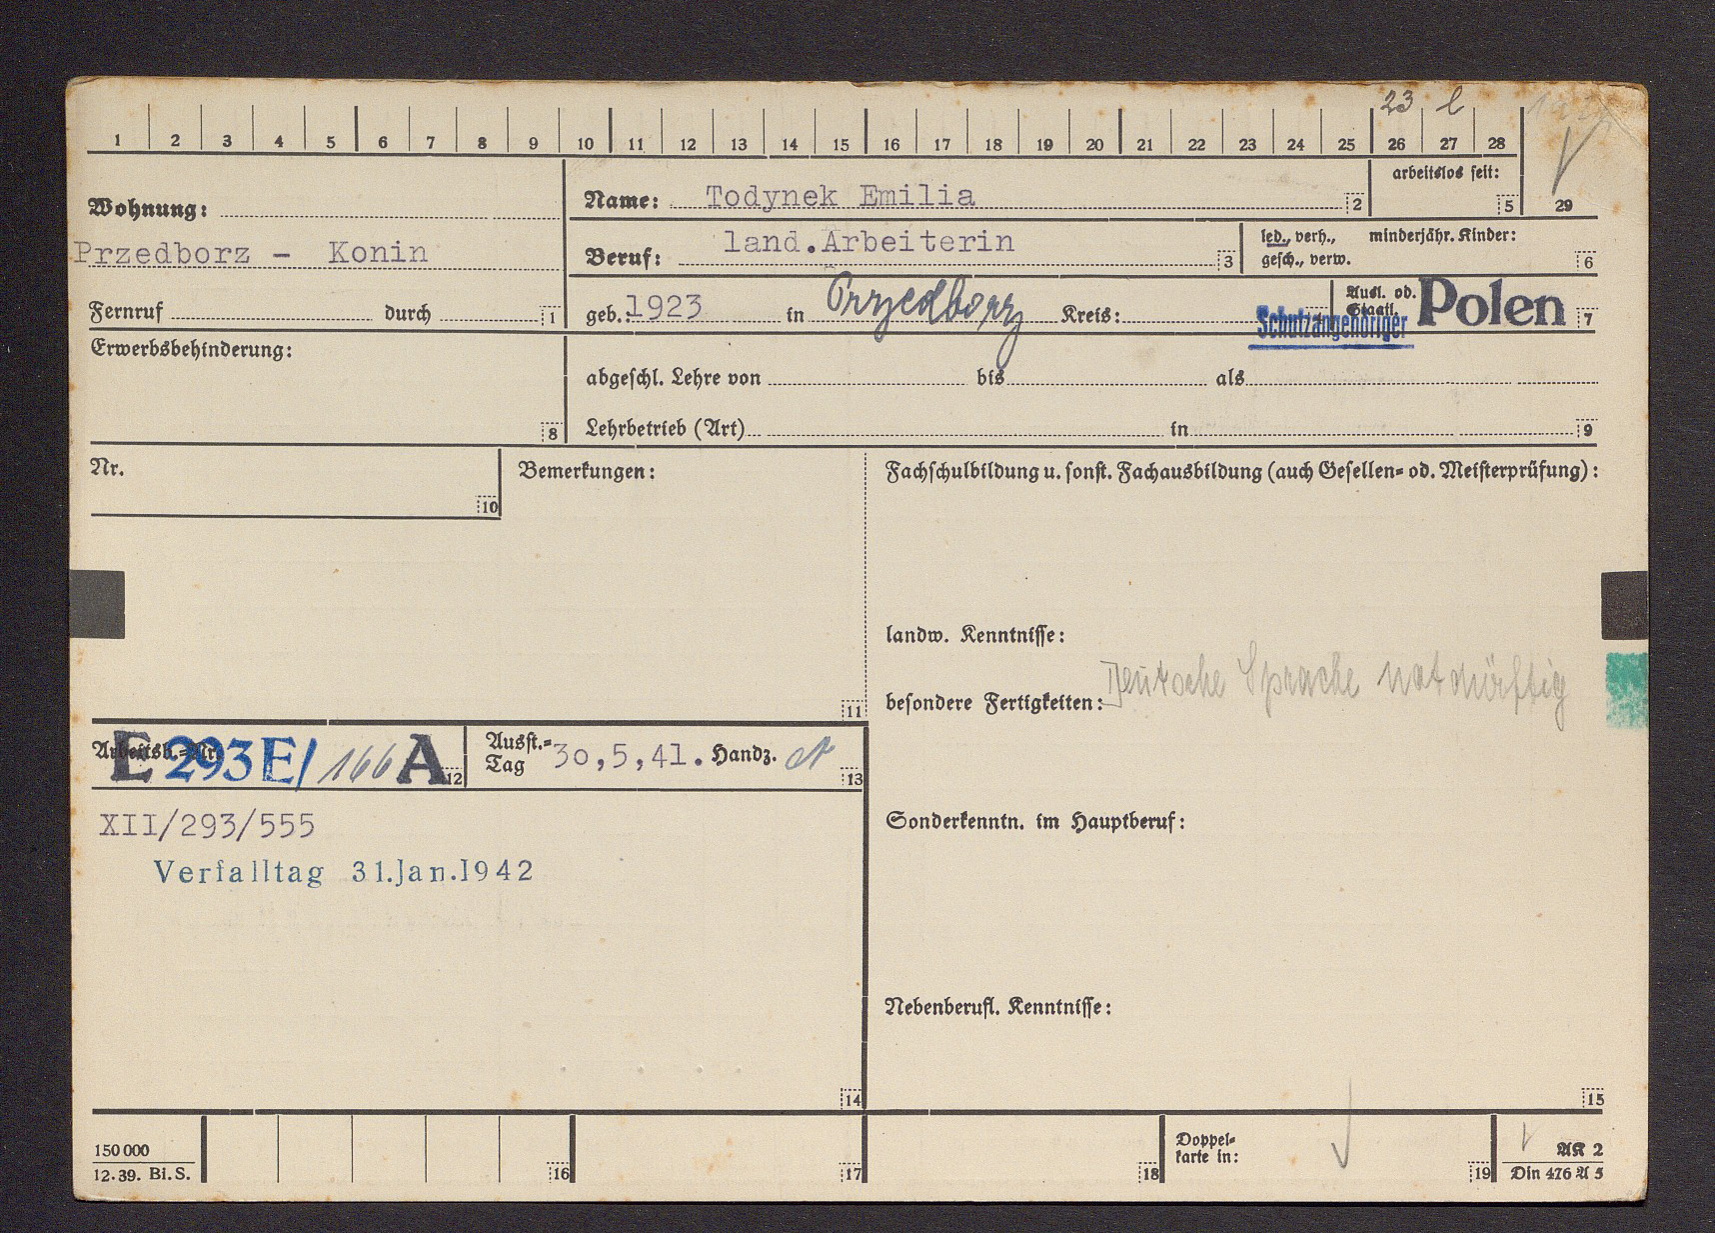 23 l
1 2 3 4 5 6 7 8 9 10 11 12 13 14 15 16 17 18 19 20 21 22 23 24 25 26 27 28
29
arbeitslos seit: 5
Wohnung:
Przedborz - Konin
Fernruf durch 1
Name: Todynek Emilia 2
Beruf: land.Arbeiterin 3
led., verh., minderjähr. Kinder:
gesch., verw. 6
geb.: 1923 in Przedborz Kreis:
Schutzangehöriger
Ausl. od.
Staatl. Polen 7
Erwerbsbehinderung:
8
abgeschl. Lehre von bis als
Lehrbetrieb (Art) in 9
Nr.
10
Bemerkungen:
11
Fachschulbildung u. sonst. Fachausbildung (auch Gesellen- od. Meisterprüfung):
landw. Kenntnisse:
besondere Fertigkeiten: Deutsche Sprache notdürftig
Arbeitsb.-Nr. E 293 E/ 166 A 12
Ausst.-
Tag 30,5,41. Handz. 13
XII/293/555
Verfalltag 31.Jan.1942
14
Sonderkenntn. im Hauptberuf:
Nebenberufl. Kenntnisse:
15
150 000
12. 39. Bi. S.
16
17
18
Doppel-
karte in:
19
AK 2
Din 476 A 5